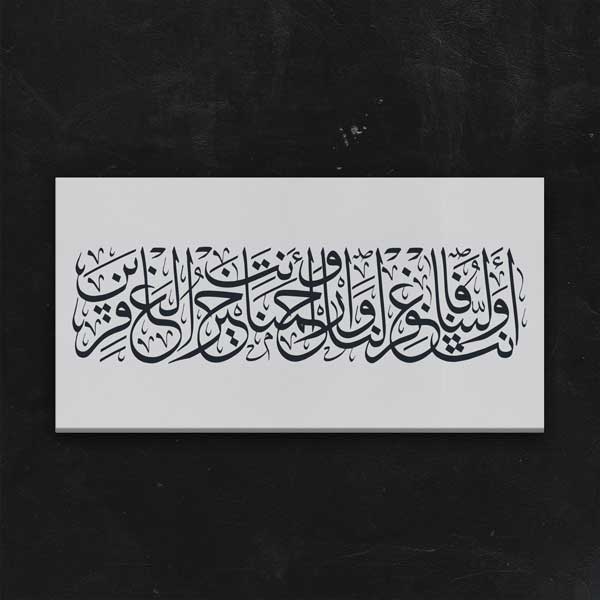 أنت ولينا فاغفر لنا وارحمنا وأنت خير الغافرين